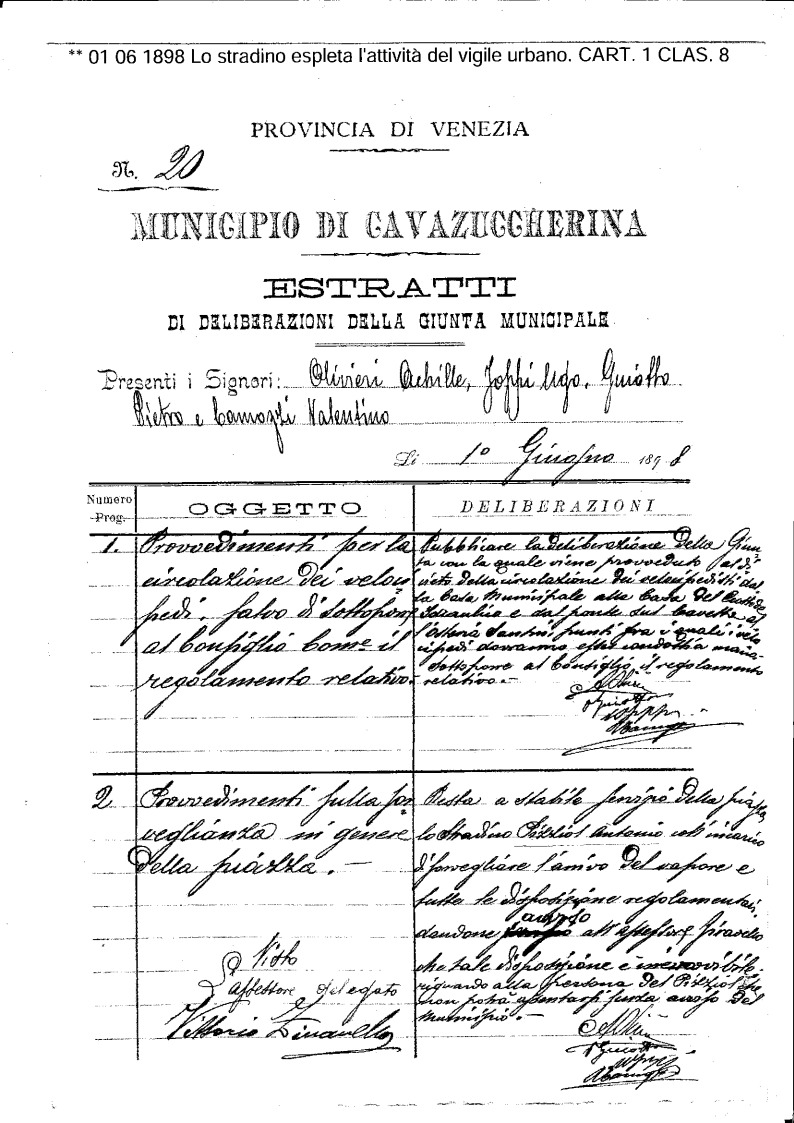 ** 01 06 1898 Lo stradino espleta l'attività del vigile urbano. CART. 1 CLAS. 8
PROVINCIA DI VENEZIA
N. 20
MUNICIPIO DI CAVAZUCCHERINA
ESTRATTI
DI DELIBERAZIONI DELLA GIUNTA MUNICIPALE
Presenti i Signori: Olivieri Achille, Joppi Ugo, Guiotto
Pietro e Camozzi Valentino
Li 1º Giugno 1898
Numero
Prog.
OGGETTO
DELIBERAZIONI
1.
Provvedimenti per la
circolazione dei veloci-
pedi, salvo di sottoporre
al Consiglio Com.e il
regolamento relativo.
Pubblicare la deliberazione della Giun-
ta con la quale viene provveduto al di-
vieto della circolazione dei velocipedisti dal
la Casa Municipale alla Casa del
e dal ponte sul Cavetta al
l'Osteria Santin punti fra i quali i velo
cipedi dovranno esser condotti a mano.
Sottoporre al Consiglio il regolamento
relativo.-
2
Provvedimenti sulla sor
veglianza in genere
della piazza. -
Resta a stabile servizio della piazza
lo Stradino Pizziol Antonio coll'incarico
di sorvegliare l'arrivo del vapore e
tutte le disposizione regolamentari,
dandone avviso all'assessore
che tale disposizione è
riguardo alla persona del Pizziol che
non potrà assentarsi senza avviso del
Municipio.-
Visto
L'assessore delegato
Vittorio